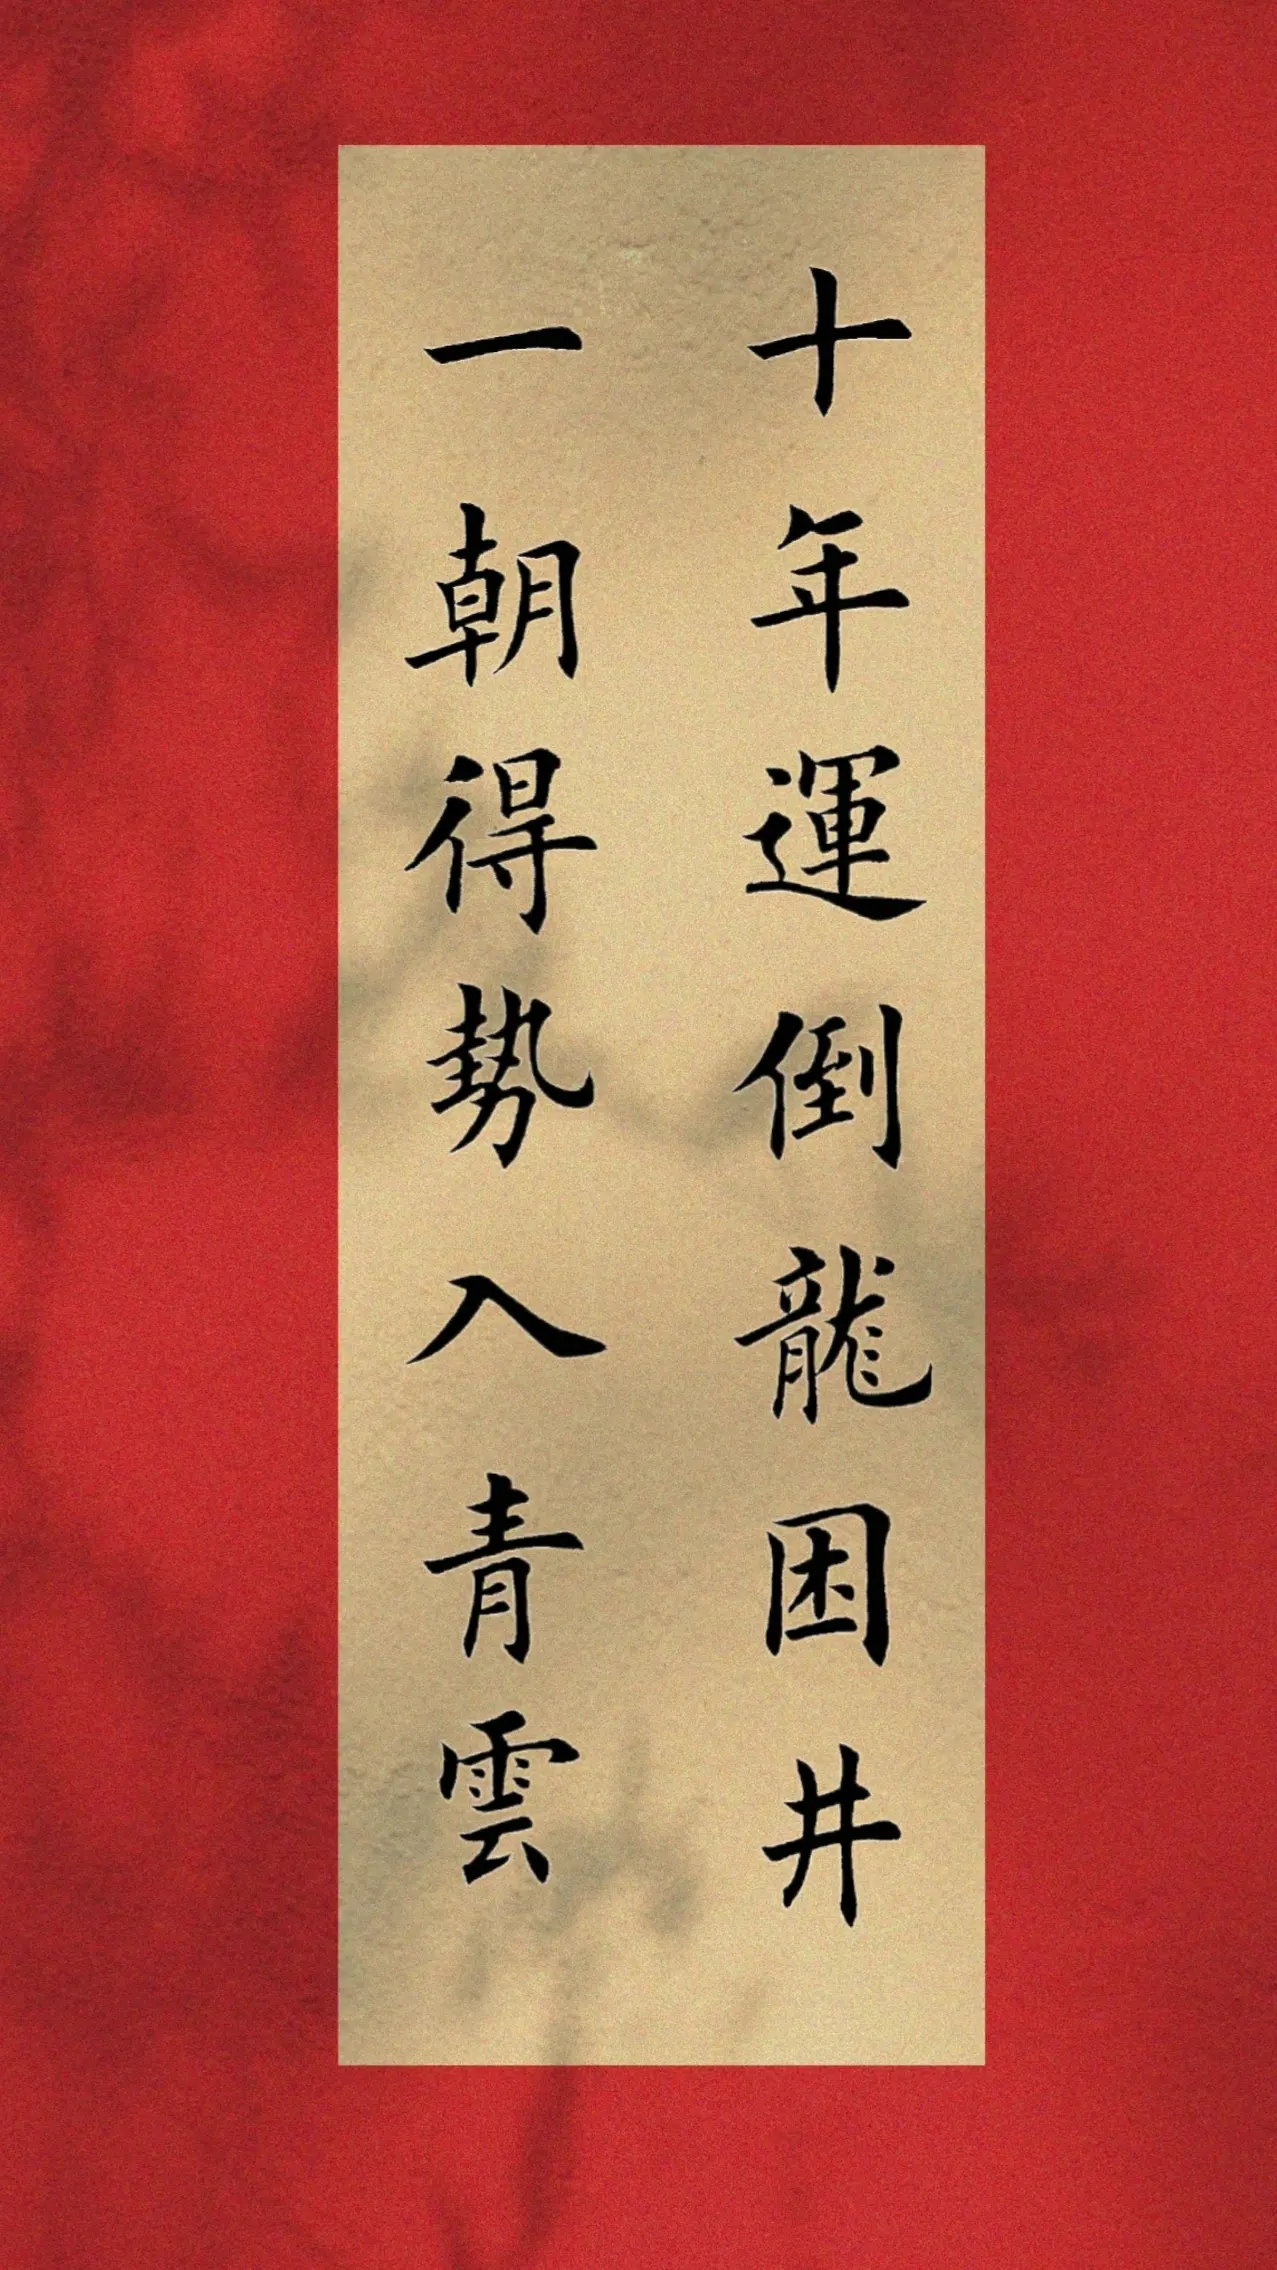 十年運倒龍困井
一朝得勢入青雲